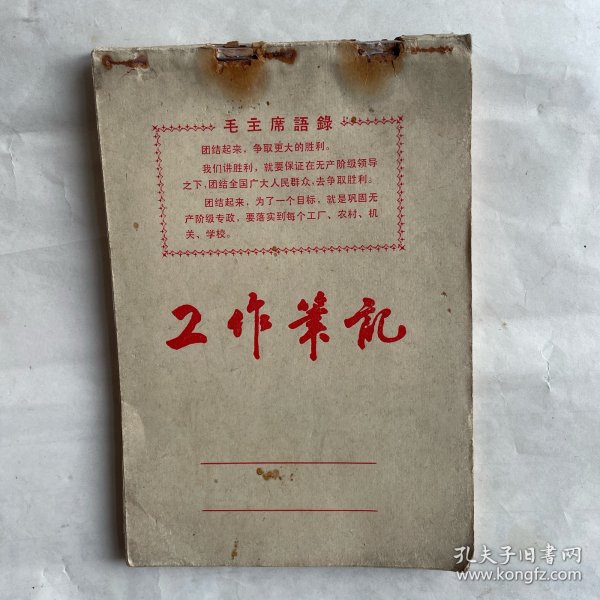 毛主席語錄
团结起来，争取更大的胜利。
我们讲胜利，就要保证在无产阶级领导
之下，团结全国广大人民群众，去争取胜利。
团结起来，为了一个目标，就是巩固无
产阶级专政，要落实到每个工厂、农村、机
关、学校。
工作笔記
孔夫子旧书网
www.kongfz.com